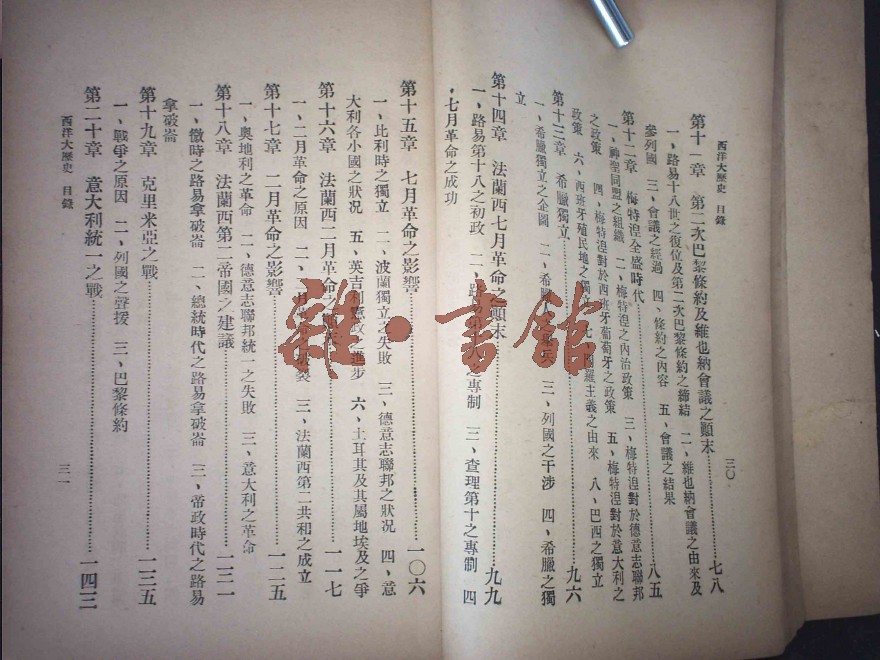 西洋大歷史 目錄 三〇
第十一章 第二次巴黎條約及維也納會議之顚末……七八
一、路易十八世之復位及第二次巴黎條約之締結 二、維也納會議之由來及
參列國 三、會議之經過 四、條約之內容 五、會議之結果
第十二章 梅特涅全盛時代……八五
一、神聖同盟之組織 二、梅特涅之內治政策 三、梅特涅對於德意志聯邦
之政策 四、梅特涅對於西班牙葡萄牙之政策 五、梅特涅對於意大利之
政策 六、西班牙殖民地之獨立 七、羅主義之由來 八、巴西之獨立
第十三章 希臘獨立……九六
一、希臘獨立之企圖 二、希臘 三、列國之干涉 四、希臘之獨
立
第十四章 法蘭西七月革命之顚末……九九
一、路易第十八之初政 二、路易 之專制 三、查理第十之專制 四
、七月革命之成功
第十五章 七月革命之影響……一〇六
一、比利時之獨立 二、波蘭獨立之失敗 三、德意志聯邦之狀況 四、意
大利各小國之狀況 五、英吉利憲政之進步 六、土耳其及其屬地埃及之爭
第十六章 法蘭西二月革命之……一一七
一、二月革命之原因 二、二月革命之 三、法蘭西第二共和之成立
第十七章 二月革命之影響……一二五
一、奧地利之革命 二、德意志聯邦統一之失敗 三、意大利之革命
第十八章 法蘭西第二帝國之建議……一三一
一、微時之路易拿破崙 二、總統時代之路易拿破崙 三、帝政時代之路易
拿破崙
第十九章 克里米亞之戰……一三五
一、戰爭之原因 二、列國之聲援 三、巴黎條約
第二十章 意大利統一之戰……一四三
西洋大歷史 目錄 三一
雜·書館